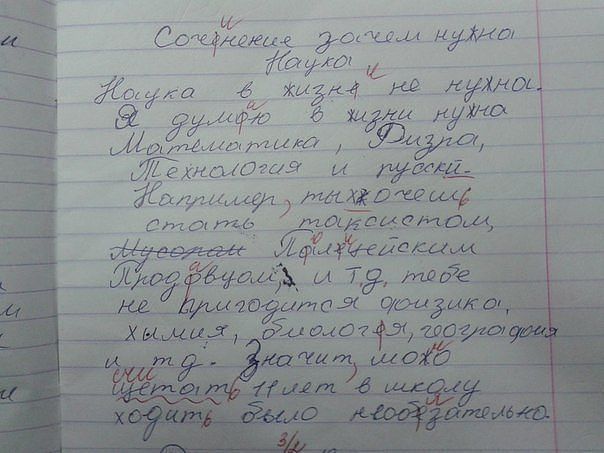 Сочинение зачем нужна
Наука
Наука в жизни не нужна.
Я думаю в жизни нужна
Математика, Физра,
Технология и русский.
Например, ты хочешь
стать таксистом,
Мусоpом Полицейским
Продавцом, и т.д. тебе
не пригодится физика,
хымия, биология, география
и т.д. Значит, можно
щетать 11 лет в школу
ходить было необязательно.
3/2